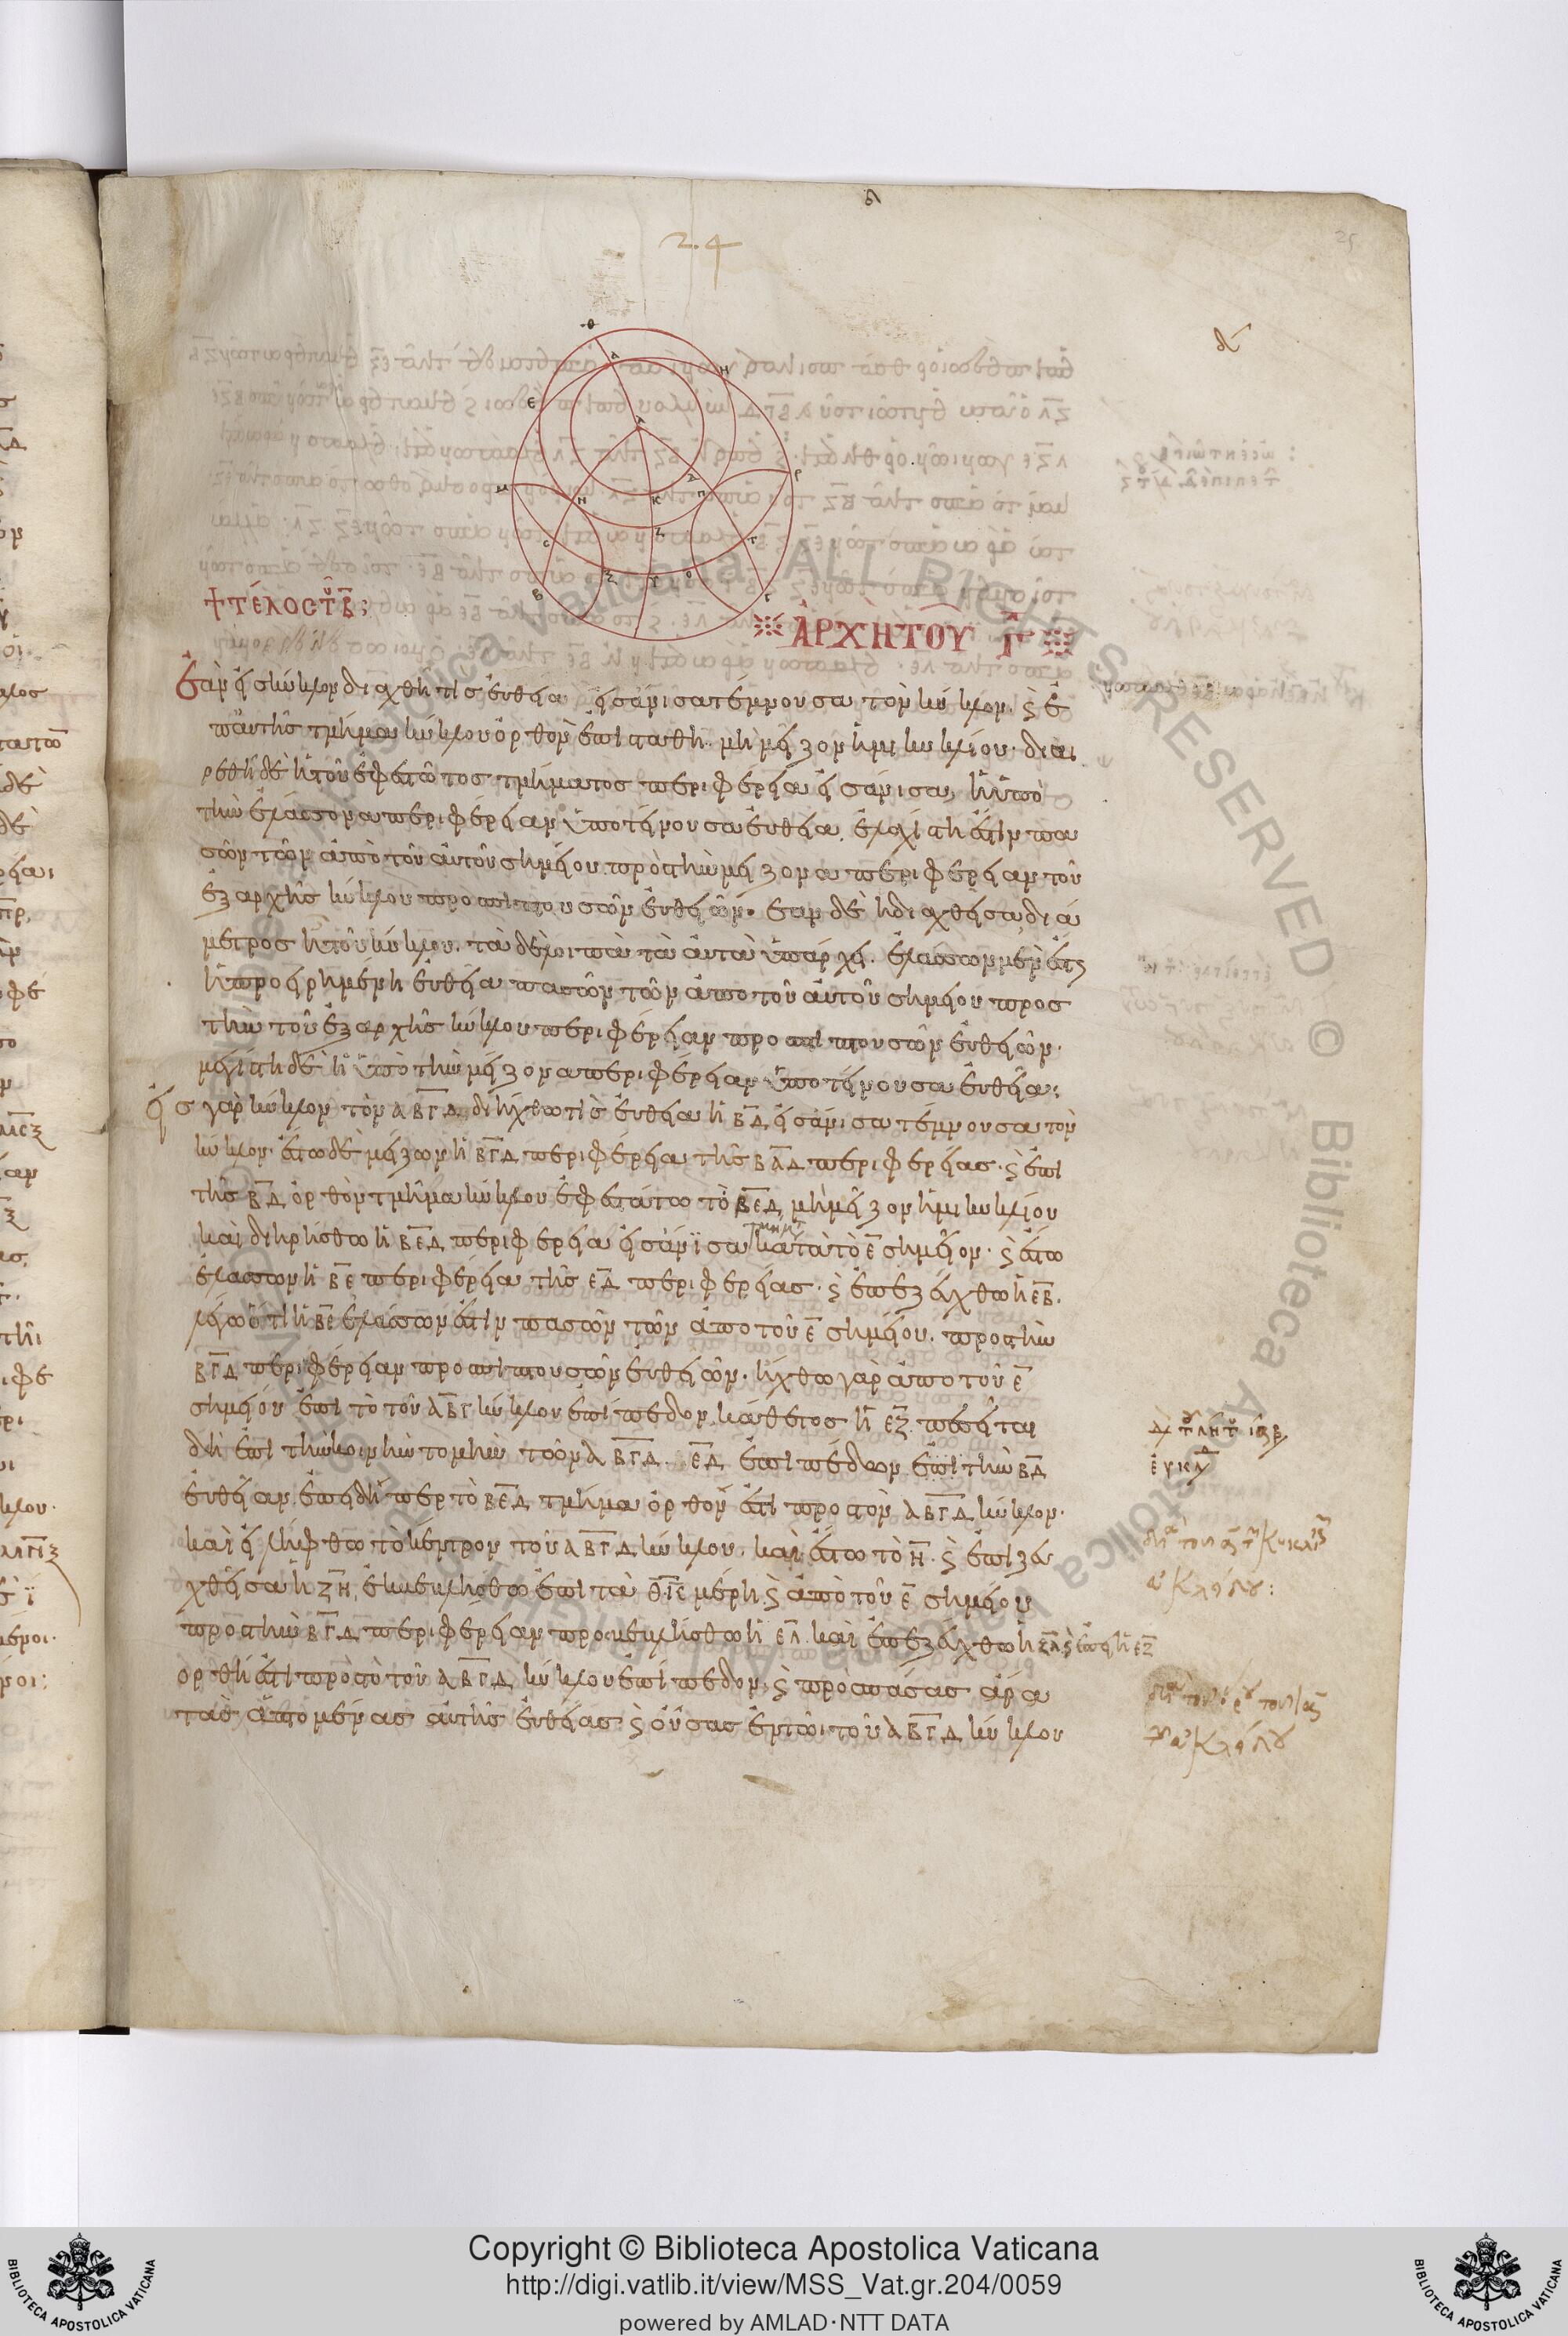 24
25
δ
+ΤΕΛΟΣ ΤΟΥ Β̅:
ΑΡΧΗ ΤΟΥ Γ̅
Ἐὰν εἰς κύκλον διαχθῆι τις εὐθεῖα εἰς ἄνισα τέμνουσα τὸν κύκλον. καὶ ἐ
π' αὐτῆς τμῆμα κύκλου ὀρθὸν ἐπισταθῆι. μὴ μεῖζον ἡμικυκλίου. διαι
ρεθῆι δὲ ἡ τοῦ ἐφεστῶτος τμήματος περιφέρεια εἰς ἄνισα, ἡ ὑπὸ
τὴν ἐλάσσονα περιφέρειαν ὑποτείνουσα εὐθεῖα, ἐλαχίστη ἐστὶν πα
σῶν τῶν ἀπὸ τοῦ αὐτοῦ σημείου πρὸς τὴν μείζονα περιφέρειαν τοῦ
ἐξ αρχῆς κύκλου προσπιπτουσῶν εὐθειῶν. ἐὰν δὲ ἡ διαχθεῖσα, διά
μετρος ἦι τοῦ κύκλου. τὰ δὲ λοιπὰ τὰ αὐτὰ ὑπάρχει. ἐλάσσων μὲν ἐστι
ἡ προειρημένη εὐθεῖα πασῶν τῶν ἀπὸ τοῦ αὐτοῦ σημείου προς
τὴν τοῦ ἐξ αρχῆς κύκλου περιφέρειαν προσπιπτουσῶν εὐθειῶν.
μεγίστη δὲ ἡ ὑπὸ τὴν μείζονα περιφέρειαν ὑποτείνουσα εὐθεῖα:
εἰς γὰρ κύκλον τὸν Α̅Β̅Γ̅Δ̅ διήχθω τὶς εὐθεῖα ἡ Β̅Δ̅ εἰς ἄνισα τέμνουσα τὸν
κύκλον. ἔστω δὲ μείζων ἡ Β̅Γ̅Δ̅ περιφέρεια τῆς Β̅Α̅Δ̅ περιφερείας. καὶ ἐπὶ
τῆς Β̅Δ̅ ὀρθὸν τμῆμα κύκλου ἐφεστάτω τὸ Β̅Ε̅Δ̅, μὴ μεῖζον ἡμικυκλίου
καὶ διηρήσθω ἡ Β̅Ε̅Δ̅ περιφέρεια εἰς ἄνϊσα κατὰ τὸ Ε̅ σημεῖον. καὶ ἔστω
ἐλάσσων ἡ Β̅Ε̅ περιφέρεια τῆς Ε̅Δ̅ περιφερείας. καὶ ἐπεζεύχθω ἡ Ε̅Β̅.
λέγω ὅτι ἡ Β̅Ε̅ ἐλάσσων ἐστὶν πασῶν τῶν ἀπὸ τοῦ Ε̅ σημείου. πρὸς τὴν
Β̅Γ̅Δ̅ περιφέρειαν προσπιπτουσῶν εὐθειῶν. ἤχθω γὰρ ἀπὸ τοῦ Ε̅
σημείου ἐπὶ τὸ τοῦ Α̅Β̅Γ̅ κύκλου ἐπίπεδον κάθετος ἡ Ε̅Ζ̅. πεσεῖται
δὴ ἐπὶ τὴν κοινὴν τομὴν τῶν Α̅Β̅Γ̅Δ̅. Ε̅Δ̅ ἐπιπέδων ἐπὶ τὴν Β̅Δ̅
εὐθεῖαν, ἐπειδήπερ τὸ Β̅Ε̅Δ̅ τμῆμα ὀρθόν ἐστι πρὸς τὸν Α̅Β̅Γ̅Δ̅ κύκλον.
καὶ εἰλήφθω τὸ κέντρον τοῦ Α̅Β̅Γ̅Δ̅ κύκλου. καὶ ἔστω τὸ Η̅. καὶ ἐπιζευ
χθεῖσα ἡ Ζ̅Η̅, ἐκβεβλήσθω ἐπὶ τὰ Θ̅. Κ̅ μέρη. καὶ ἀπὸ τοῦ Ε̅ σημείου
πρὸς τὴν Β̅Γ̅Δ̅ περιφέρειαν προσβεβλήσθω ἡ Ε̅Λ̅. καὶ ἐπεζεύχθω ἡ Ζ̅Λ̅. καὶ ἐπεὶ ἡ Ε̅Ζ̅
ὀρθή ἐστι πρὸς τὸ τοῦ Α̅Β̅Γ̅Δ̅ κύκλου ἐπίπεδον, καὶ πρὸς πάσας ἄρα
τὰς ἁπτομένας αὐτῆς εὐθείας καὶ οὔσας ἐν τῶι τοῦ Α̅Β̅Γ̅Δ̅ κύκλου
Copyright © Biblioteca Apostolica Vaticana
http://digi.vatlib.it/view/MSS_Vat.gr.204/0059
powered by AMLAD·NTT DATA
BIBLIOTECA APOSTOLICA VATICANA
BIBLIOTECA APOSTOLICA VATICANA